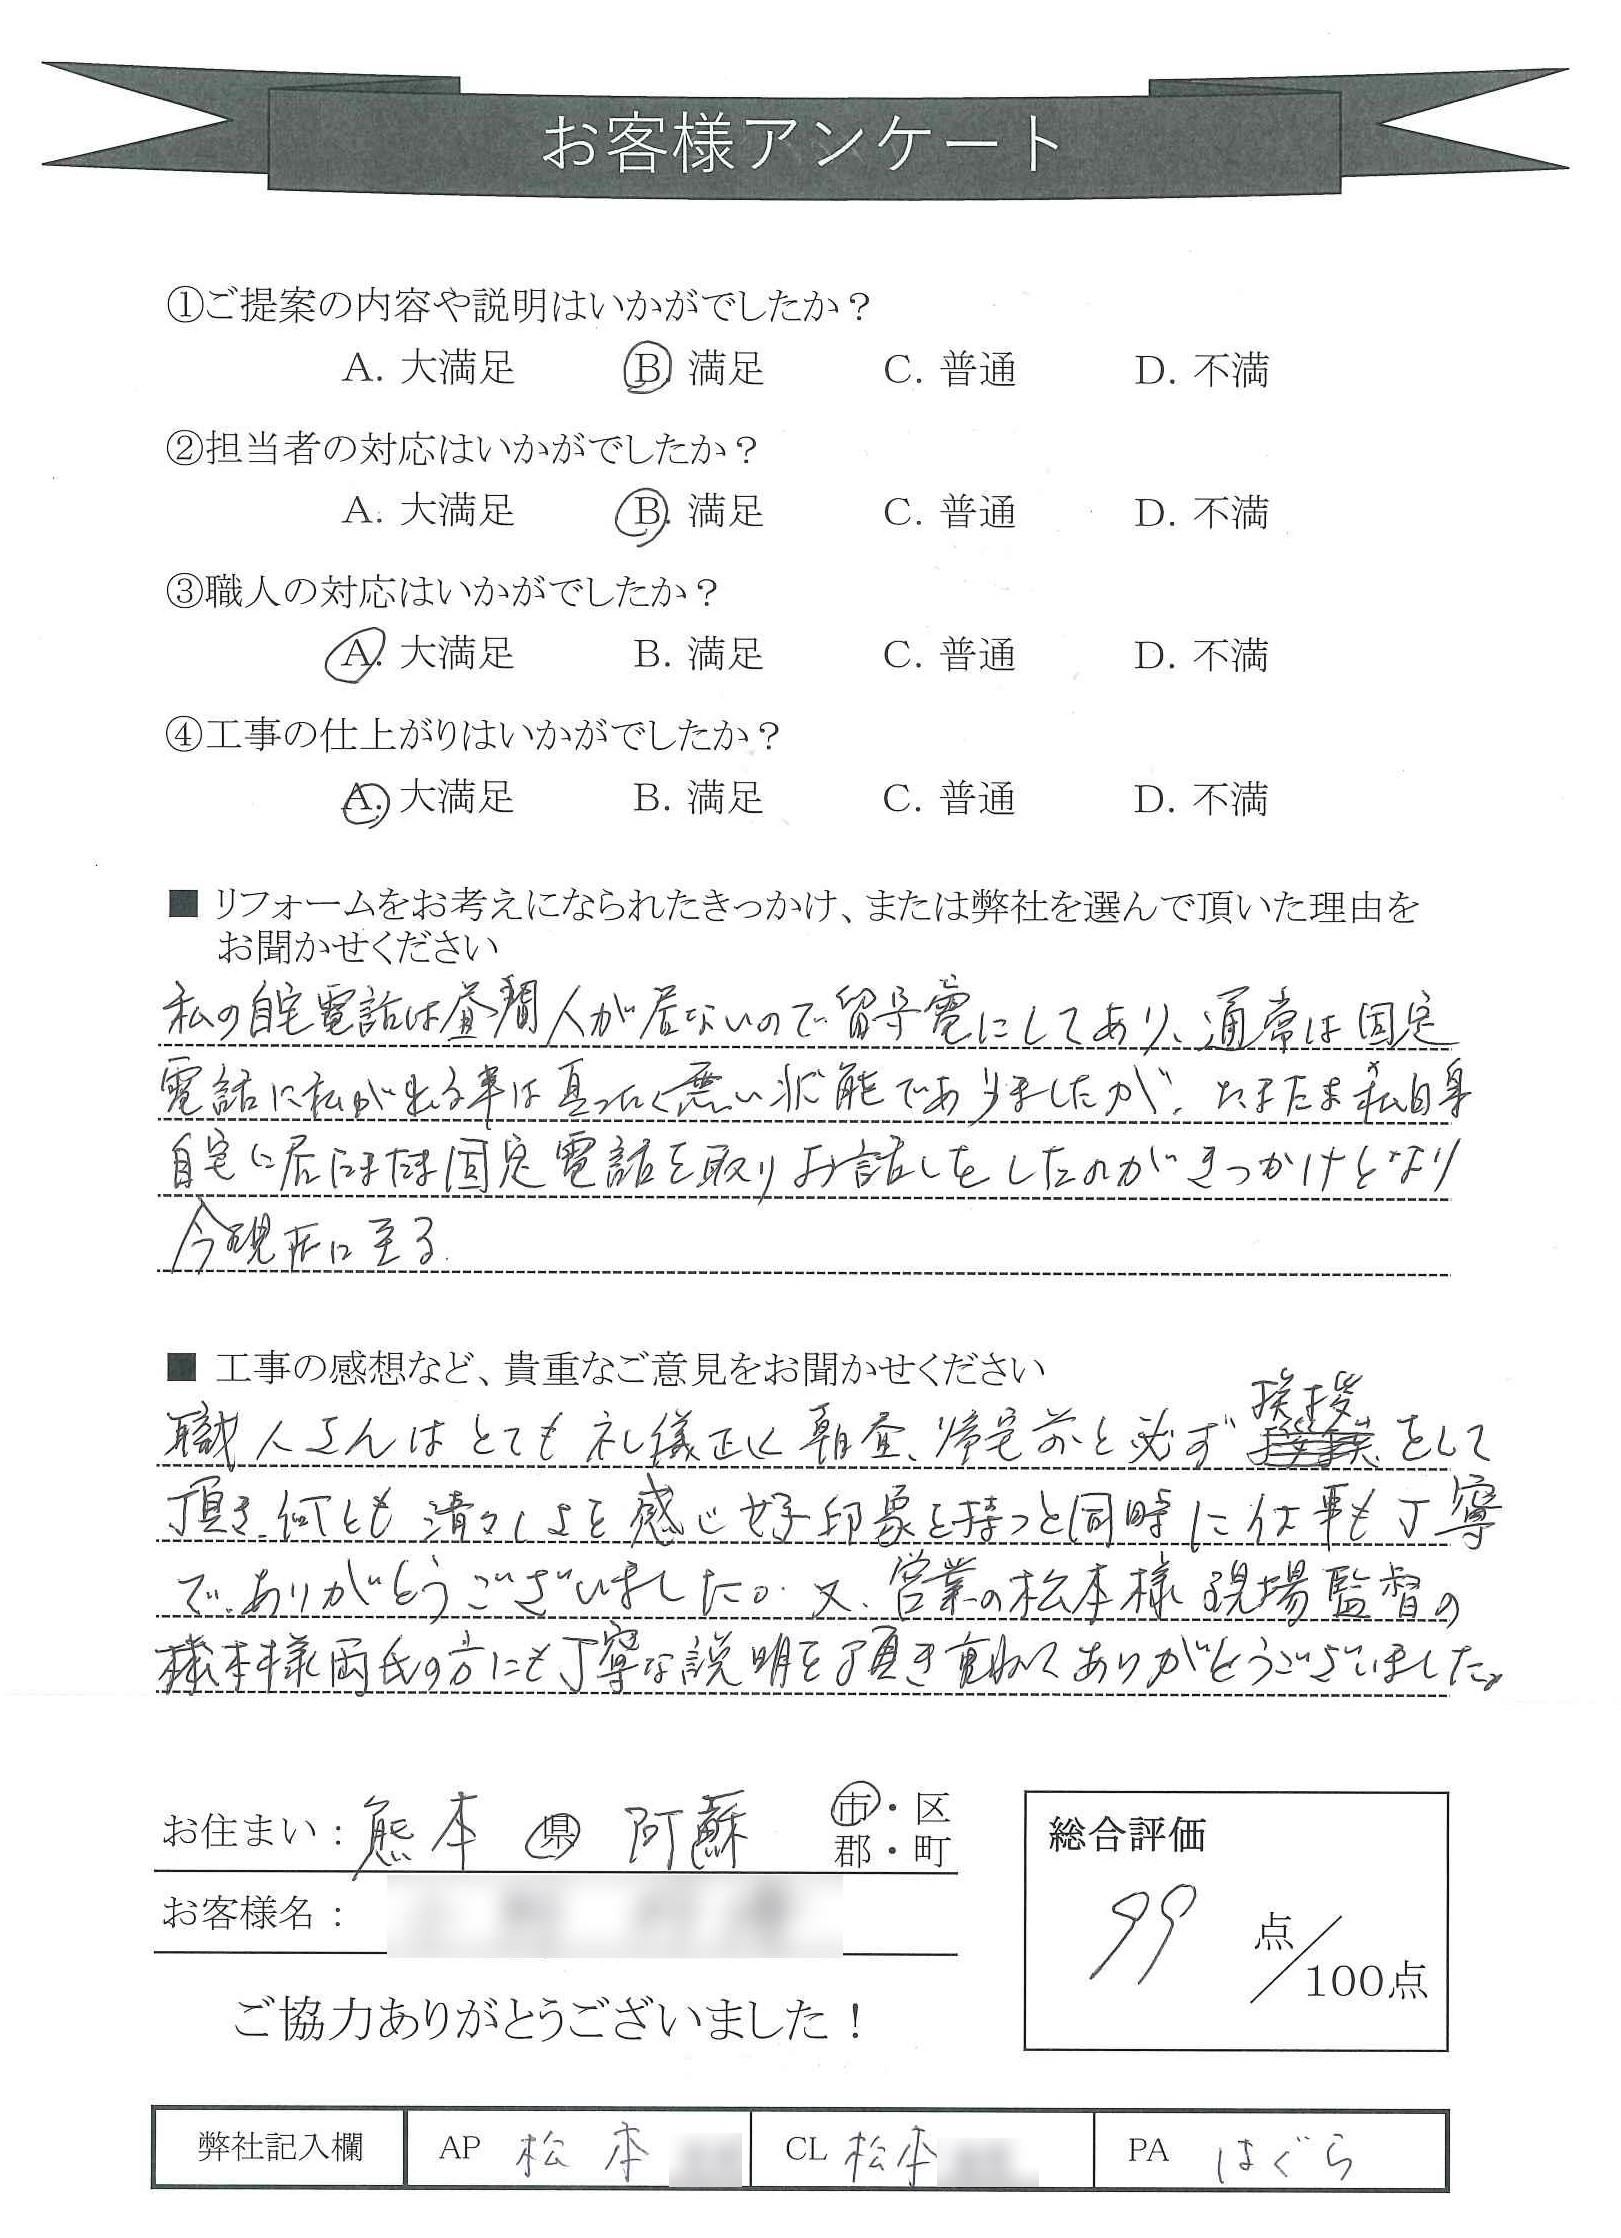 お客様アンケート
①ご提案の内容や説明はいかがでしたか？
A. 大満足 B. 満足 C. 普通 D. 不満
②担当者の対応はいかがでしたか？
A. 大満足 B. 満足 C. 普通 D. 不満
③職人の対応はいかがでしたか？
A. 大満足 B. 満足 C. 普通 D. 不満
④工事の仕上がりはいかがでしたか？
A. 大満足 B. 満足 C. 普通 D. 不満
■ リフォームをお考えになられたきっかけ、または弊社を選んで頂いた理由を
お聞かせください
私の自宅電話は昼間人が居ないので留守電にしてあり、通常は固定
電話に私が出る事は真ったく無い状態でありましたが、たまたま私自身
自宅に居たまたま固定電話を取りお話しをしたのがきっかけとなり
今現在に至る.
■ 工事の感想など、貴重なご意見をお聞かせください
職人さんはとても礼儀正しく朝昼、帰宅前と必ず挨拶をして
頂き何とも清々しさを感じ好印象を持つと同時に仕事も丁寧
で、ありがとうございました。又、営業の松本様 現場監督の
様両氏の方にも丁寧な説明を頂き重ねてありがとうございました。
お住まい : 熊本 県 阿蘇 市・区
郡・町
お客様名 :
総合評価
99 点/100点
ご協力ありがとうございました！
弊社記入欄 AP 松本 CL 松本 PA はぐら